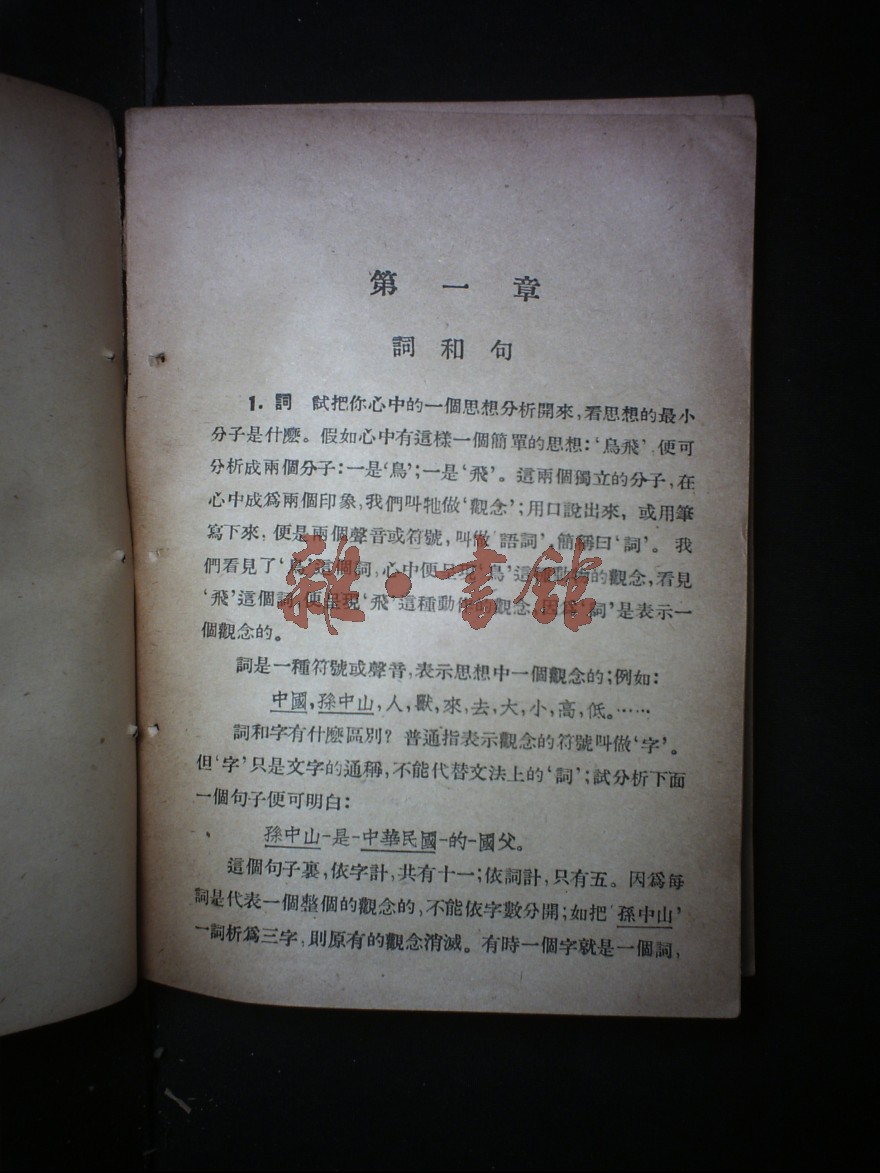 第一章
詞和句
1. 詞　試把你心中的一個思想分析開來，看思想的最小
分子是什麽。假如心中有這樣一個簡單的思想：‘鳥飛’便可
分析成兩個分子：一是‘鳥’；一是‘飛’。這兩個獨立的分子，在
心中成爲兩個印象，我們叫牠做‘觀念’；用口說出來，或用筆
寫下來，便是兩個聲音或符號，叫做‘語詞’，簡稱曰‘詞’。我
們看見了‘鳥’這個詞，心中便呈現‘鳥’這種動物的觀念，看見
‘飛’這個詞，便呈現‘飛’這種動作的觀念，因爲‘詞’是表示一
個觀念的。
詞是一種符號或聲音，表示思想中一個觀念的；例如：
中國，孫中山，人，獸，來，去，大，小，高，低。……
詞和字有什麽區別？普通指表示觀念的符號叫做‘字’。
但‘字’只是文字的通稱，不能代替文法上的‘詞’；試分析下面
一個句子便可明白：
孫中山-是-中華民國-的-國父。
這個句子裏，依字計，共有十一；依詞計，只有五。因爲每
詞是代表一個整個的觀念的，不能依字數分開；如把‘孫中山’
一詞析爲三字，則原有的觀念消滅。有時一個字就是一個詞，
雜·書館